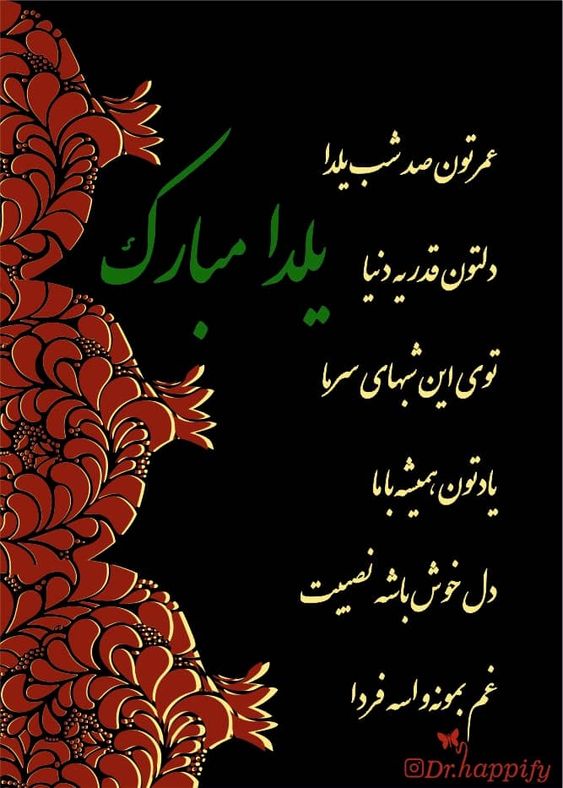 عمرتون صد شب یلدا
یلدا مبارک
دلتون قدر یه دنیا
توی این شبهای سرما
یادتون همیشه با ما
دل خوش باشه نصیبت
غم بمونه واسه فردا
Dr.happify